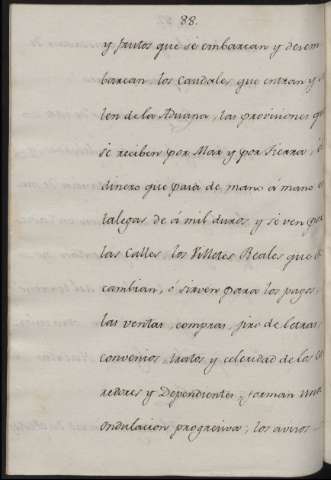 88.
y frutos que se embarcan y desem
barcan, los Caudales que entran y s
len de la Aduana, las provisiones q
se reciben por Mar y por tierra, e
dinero que pasa de mano á mano e
talegas de á mil duros y se ven po
las Calles, los Villetes Reales que s
cambian, ó sirven para los pagos,
las ventas, compras, jiro de letras,
convenios, tratos y celeridad de los Co
rredores y Dependientes, forman una
ondulacion progresiva; los avisos